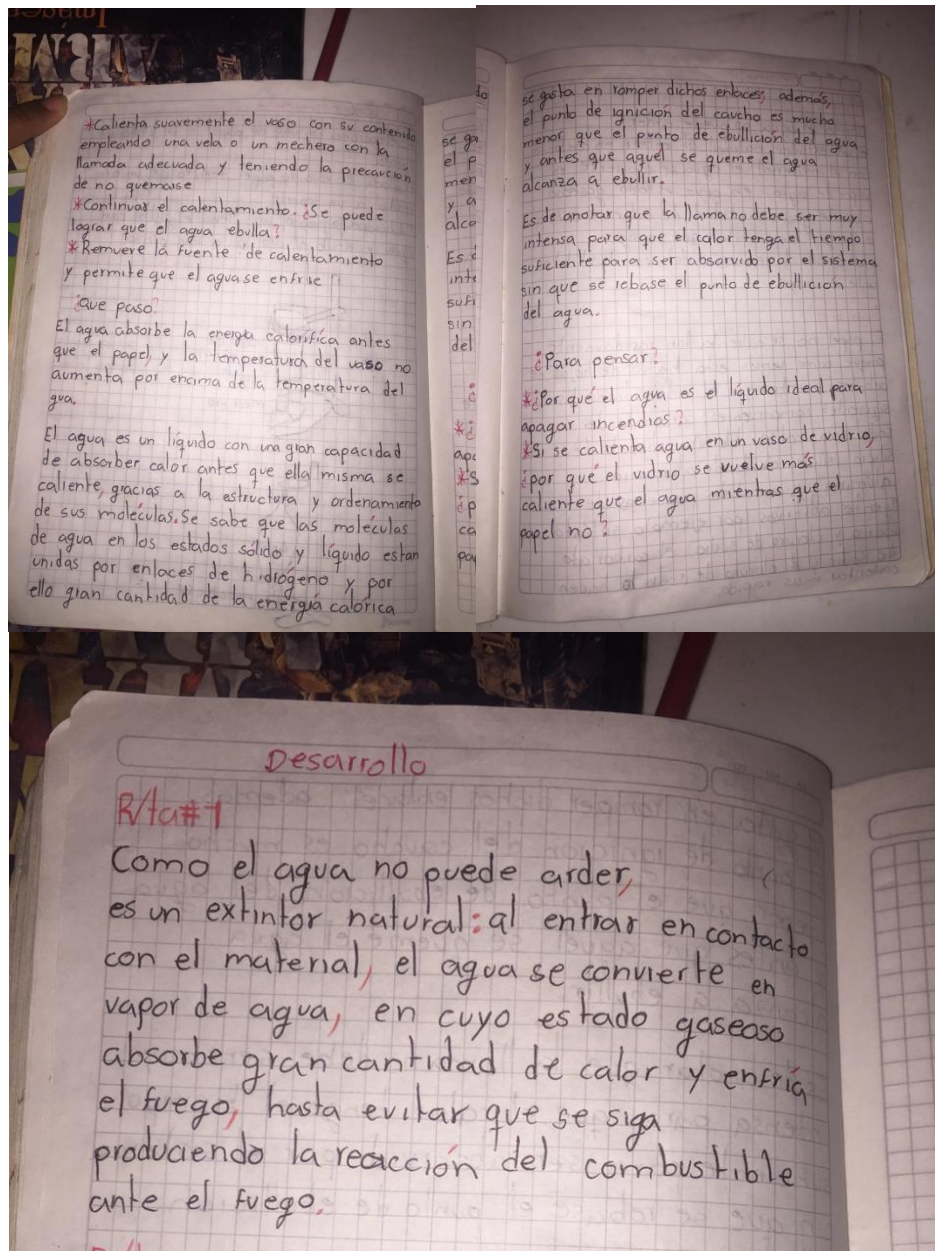 *Calienta suavemente el vaso con su contenido
empleando una vela o un mechero con la
llamada adecuada y teniendo la precaución
de no quemarse
*Continuar el calentamiento. ¿Se puede
lograr que el agua ebulla?
*Remueve la fuente de calentamiento
y permite que el agua se enfrie
¿Que paso?
El agua absorbe la energia calorífica antes
que el papel, y la temperatura del vaso no
aumenta por encima de la temperatura del
gua.
El agua es un líquido con una gran capacidad
de absorber calor antes que ella misma se
caliente, gracias a la estructura y ordenamiento
de sus moléculas. Se sabe que las moléculas
de agua en los estados sólido y líquido estan
unidas por enlaces de hidrógeno y por
ello gran cantidad de la energía calórica
se gasta en romper dichos enlaces; además,
el punto de ignición del caucho es mucho
menor que el punto de ebullición del agua
y antes que aquel se queme el agua
alcanza a ebullir.
Es de anotar que la llama no debe ser muy
intensa para que el calor tenga el tiempo
suficiente para ser absorvido por el sistema
sin que se rebase el punto de ebullicion
del agua.
¿Para pensar?
*¿Por qué el agua es el líquido ideal para
apagar incendios?
*Si se calienta agua en un vaso de vidrio,
¿por qué el vidrio se vuelve más
caliente que el agua mientras que el
papel no?
Desarrollo
R/ta#1
Como el agua no puede arder,
es un extintor natural: al entrar en contacto
con el material, el agua se convierte en
vapor de agua, en cuyo estado gaseoso
absorbe gran cantidad de calor y enfría
el fuego, hasta evitar que se siga
produciendo la reacción del combustible
ante el fuego.